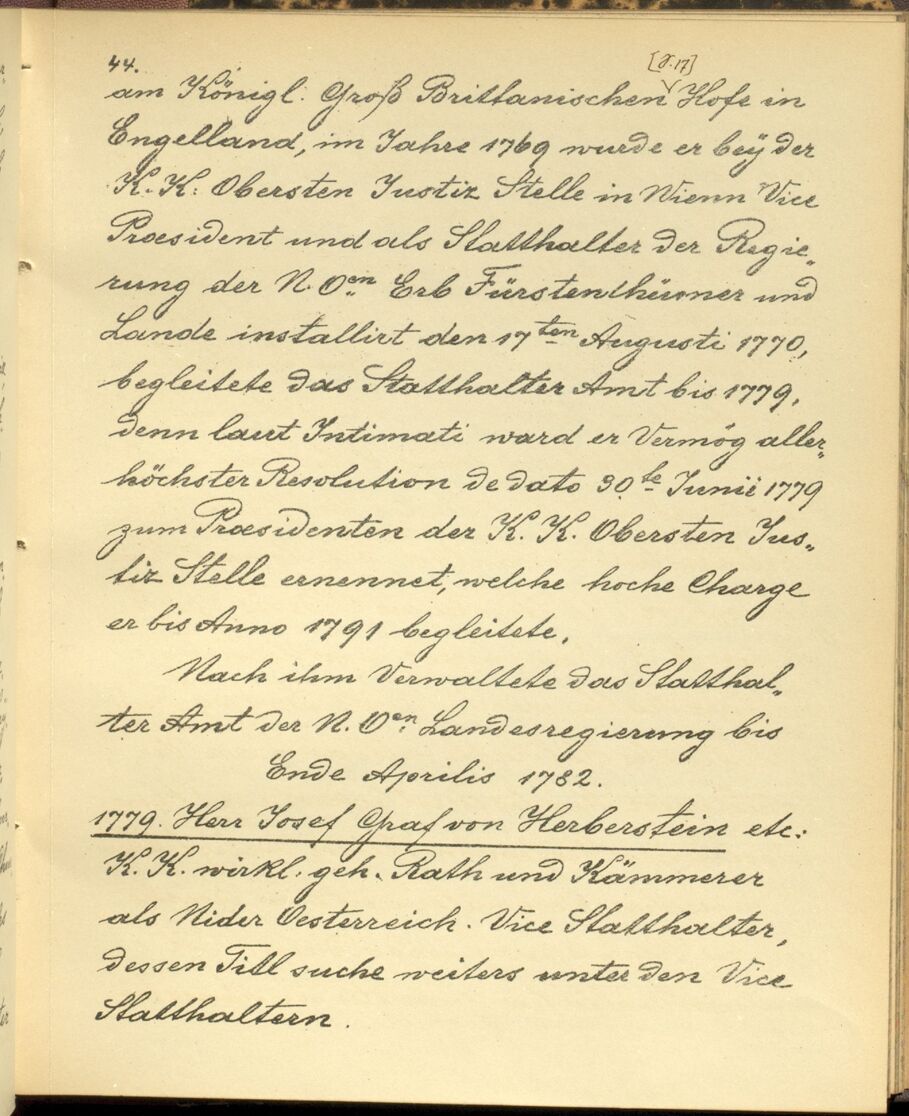 44.
am Königl. Groß Brittanischen Hofe in
Engelland, im Jahre 1769 wurde er bey der
K. K. Obersten Justiz Stelle in Wienn Vice
Præsident und als Statthalter der Regie„
rung der N. Oen Erb Fürstenthümer und
Lande installirt den 17ten Augusti 1770,
begleitete das Statthalter Amt bis 1779,
denn laut Intimati ward er Vermög aller„
höchster Resolution de dato 30te Junii 1779
zum Præsidenten der K. K. Obersten Jus„
tiz Stelle ernennet, welche hoche Charge
er bis Anno 1791 begleitete.
Nach ihm Verwaltete das Statthal„
ter Amt der N. Oen Landesregierung bis
Ende Aprilis 1782.
1779. Herr Josef Graf von Herberstein etc:
K. K. wirkl. geh. Rath und Kämmerer
als Nider Oesterreich. Vice Statthalter,
dessen Titl suche weiters unter den Vice
Statthaltern.